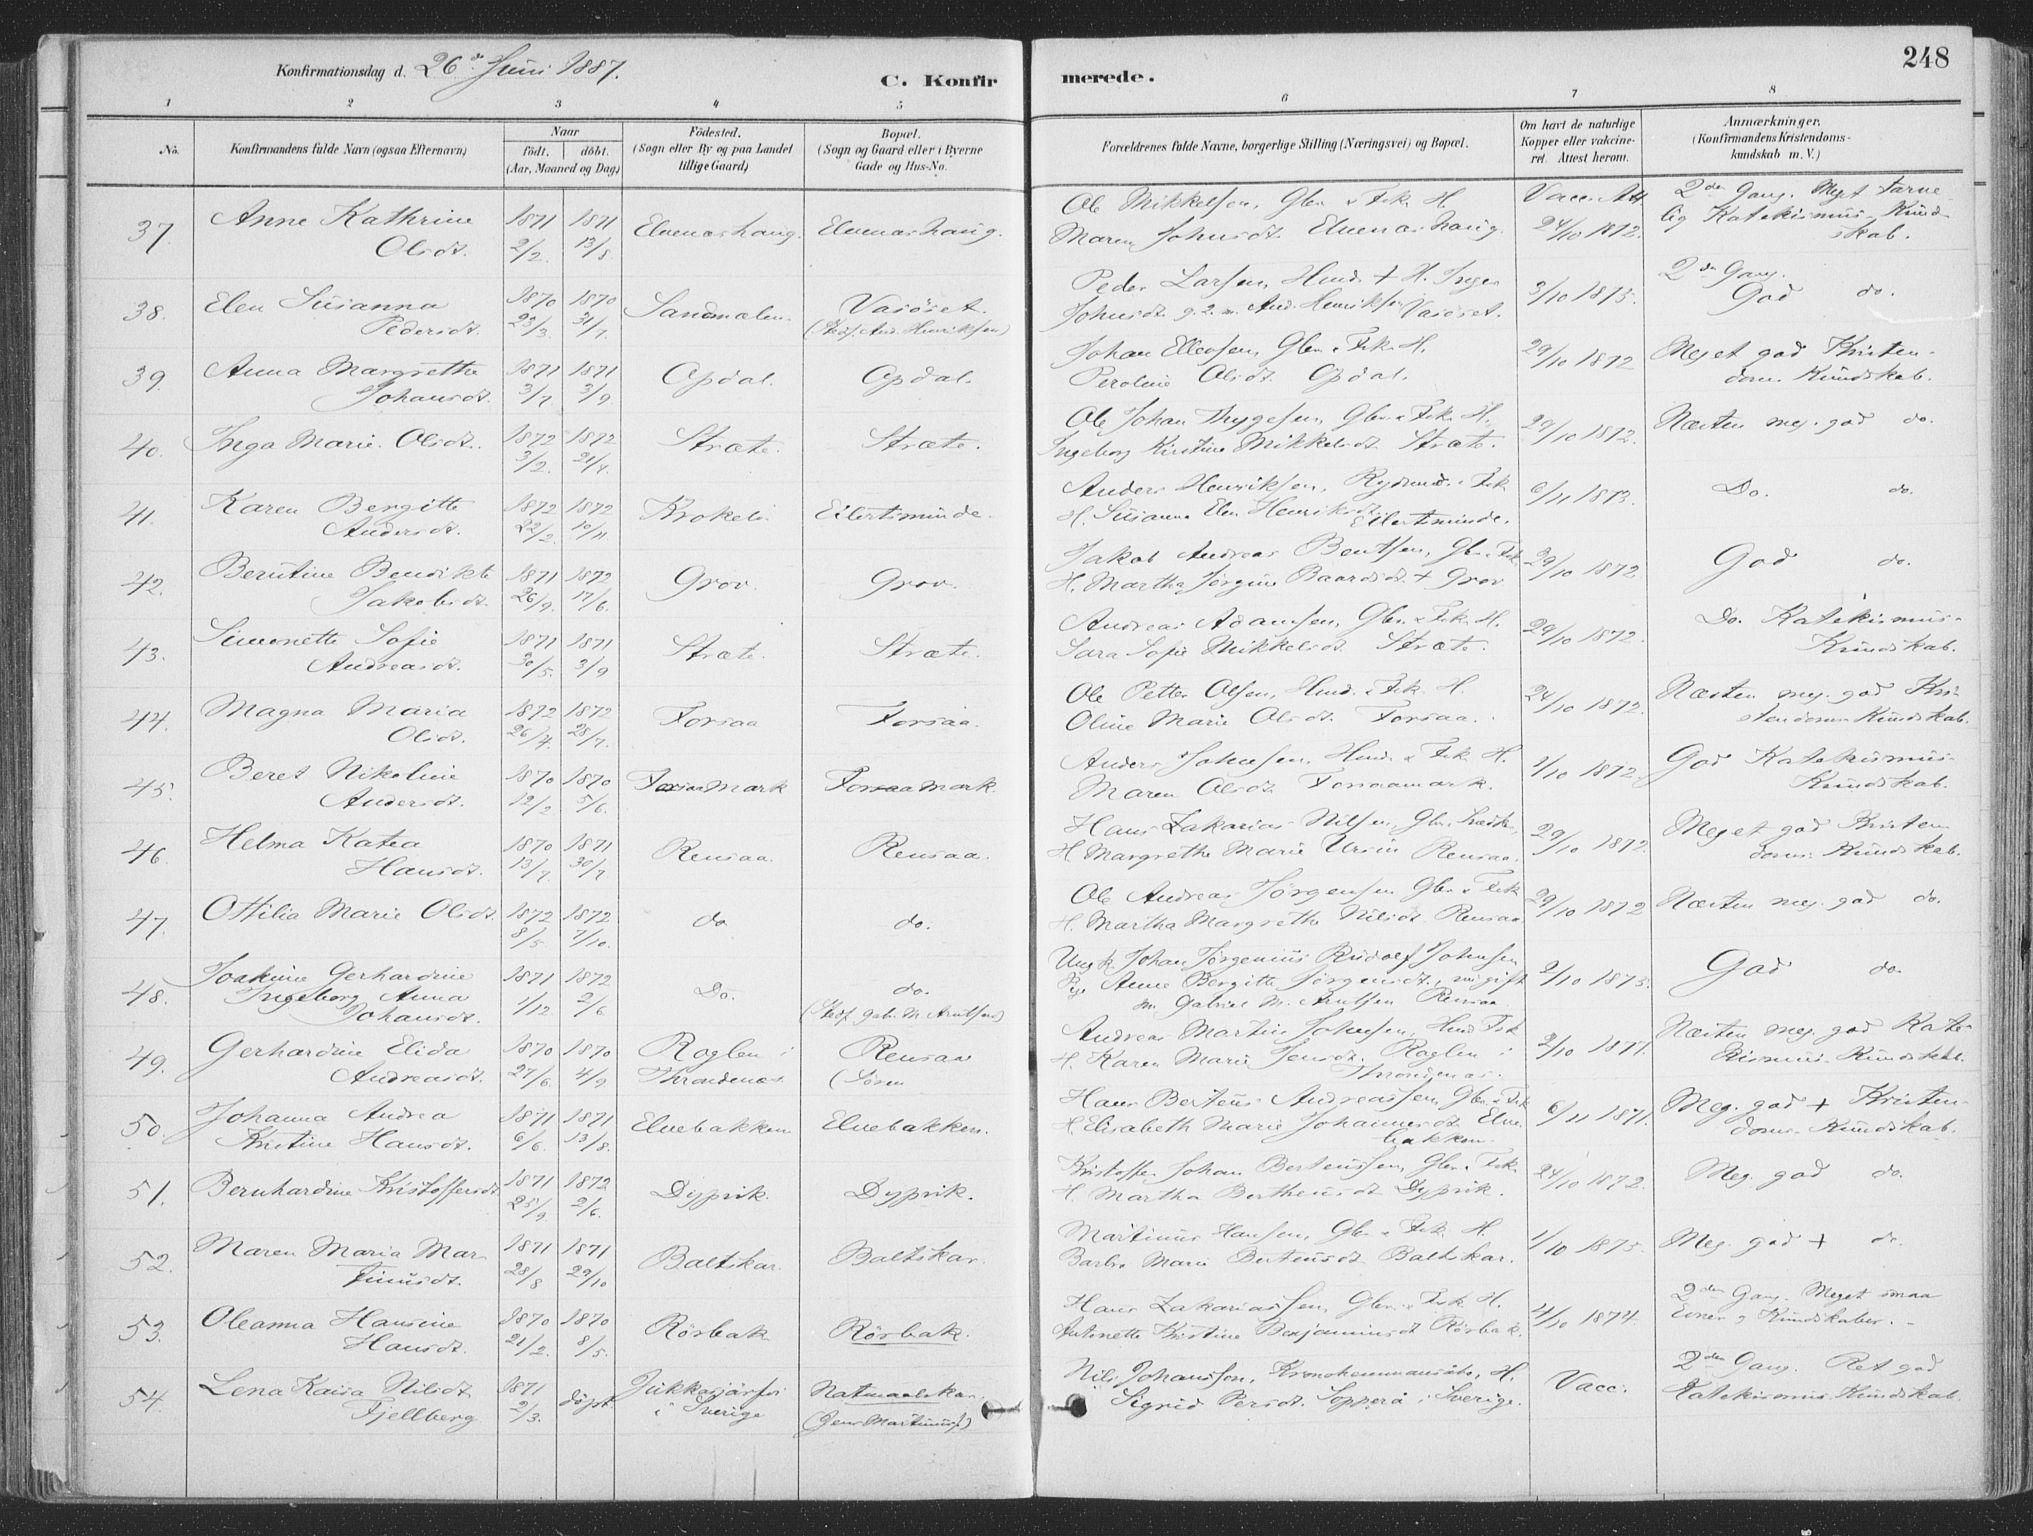 248
Konfirmationsdag d. 26de Juni 1887.
C. Konfir merede.
1 2 3 4 5 6 7 8
No.
Konfirmandens fulde Navn (ogsaa Efternavn)
Naar
födt. döbt.
(Aar, Maaned og Dag)
Födested.
(Sogn eller By og paa Landet
tillige Gaard)
Bopæl.
(Sogn og Gaard eller i Byerne
Gade og Hus-No.
Forældrenes fulde Navne, borgerlige Stilling (Næringsvei) og Bopæl.
Om havt de naturlige
Kopper eller vakcine-
ret. Attest herom.
Anmærkninger.
(Konfirmandens Kristendoms-
kundskab m. V.)
37. Anne Kathrine 1871 1871 Elveneshaug. Elveneshaug. Ole Mikkelsen, Gbr. & Fisk. H. Vacc. Att 2den Gang. Meget tarve-
Olsdt. 2/2. 13/8 Maren Johnsdt. Elveneshaug. 24/10 1872. lig Katekismus-Kund-
skab.
38. Elen Susanna 1870 1870 Sandmælen. Vasöset. Peder Larsen, Husm. + H. Inger 3/10 1875. 2den Gang.
Pedersdt. 23/3. 31/7. (Stedf. And. Henriksen) Johnsdt. g. 2. m. And. Henriksen Vasöset. God do.
39. Anna Margrethe 1871 1871 Opdal. Opdal. Johan Ellevsen, Gbr. & Fisk. H. 29/10 1872 Meget god Kristen-
Johansdt. 3/7. 3/9. Peroline Olsdt. Opdal. doms-Kundskab.
40. Inga Marie Olsdt. 1872 1872 Stræte. Stræte. Ole Johan Thygesen, Gbr. & Fisk. H. 29/10 1872. Næsten meg. god do.
3/2. 21/4. Ingeborg Kirstine Mikkelsdt. Stræte.
41. Karen Bergitte 1872 1872 Krokeli. Eilertsminde. Anders Henriksen, Rydsmd. & Fisk 6/11 1873. Do. do.
Andersdt. 22/2. 10/11 H. Susanna Elen Henriksdt. Eilertsminde.
42. Berntine Bendikte 1871 1872 Grov. Grov. Jakob Andreas Bentsen, Gbr. & Fisk 29/10 1872 God do.
Jakobsdt. 26/9. 17/6. H. Martha Jørgine Baardsdt. + Grov
43. Simonette Sofie 1871 1871 Stræte. Stræte. Andreas Adamsen, Gbr. & Fisk. H. 29/10 1872. Do. Katekismus-
Andreasdt. 30/5. 3/9 Sara Sofie Mikkelsdt. Stræte. Kundskab.
44. Magna Maria 1872 1872 Forsaa Forsaa. Ole Petter Olsen, Husm. & Fisk. H. 24/10 1872. Næsten meg. god Kri-
Olsdt. 26/4. 28/7. Oline Marie Olsdt. Forsaa. stendoms-Kundskab.
45. Beret Nikoline 1870 1870 Forsaamark Forsaamark. Anders Johnsen, Husm. & Fisk. H. 1/10 1872. God Katekismus-
Andersdt. 12/2 5/6. Maren Olsdt. Forsaamark. Kundskab.
46. Helma Katea 1870 1871 Rensaa. Rensaa. Hans Zakarias Nilsen, Gbr. 29/10 1872. Meget god Kristen-
Hansdt. 13/7. 30/7 H. Margrethe Marie Ursin Rensaa. doms-Kundskab.
47. Ottilia Marie Olsdt. 1872 1872 do do. Ole Andreas Jørgensen Gbr. & Fisk 29/10 1872 Næsten meg. god do.
8/5. 7/10. H. Martha Margrethe Nilsdt. Rensaa
48. Joakine Gerhardine 1871 1872 Do. do. Ungk. Johan Jørgenius Rudolf Johnsen 2/10 1873. God do.
Ingeborg Anna 1/12. 2/6. (Stedf. Gab. M. Arntsen) Pige Anne Bergitte Jørgensdt., nu gift
Johansdt. m. Gabriel M. Arntsen Rensaa.
49. Gerhardine Elida 1870 1870 Roglen i Rensaa Andreas Martin Johnsen, Husm. Fisk 2/10 1877. Næsten meg. god Kate-
Andreasdt. 27/6. 4/9 Throndenæs. (Sören H. Karen Marie Jensdt. Roglen i kismus-Kundskab.
Throndenæs.
50. Johanna Andrea 1871 1871 Elvebakken Elvebakken. Hans Berteus Andreassen, Gbr. & Fisk 6/11 1871. Meg. god + Kristen-
Kristine Hansdt. 6/6. 13/8. H. Elisabeth Marie Johannesdt Elve- doms-Kundskab.
bakken.
51. Bernhardine Kristoffersdt. 1871 1872 Dyprik. Dyprik. Kristoffer Johan Berteussen, Gbr. & Fisk. 24/10 1872. Meg. god do.
25/9. 2/6. H. Martha Bertheusdt Dyprik.
52. Maren Maria Mar- 1871 1871 Baltskar. Baltskar. Martinus Hansen, Gbr. & Fisk. H. 1/10 1875 Meg. god + do.
tinusdt. 28/8 29/10. Barbro Marie Berteusdt Baltskar.
53. Oleanna Hansine 1870 1870 Rörbak Rörbak. Hans Zakariassen, Gbr. & Fisk H. 4/10 1874. 2den Gang. Meget smaa
Hansdt. 21/2. 8/5. Antonette Kristine Benjaminsdt Rörbak. Evner og Kundskaber.
54. Lena Kaisa Nilsdt. 1871 döpt. Jukkasjärfvi Natmaalskar. Nils Johansson, Kronohemmansåbo, H. Vacc. 2den Gang. Ret god
Fjellberg 2/3. i Sverige (Jens Martinus.) Sigrid Persdt. Sopperå i Sverige. Katekismus-Kundskab.